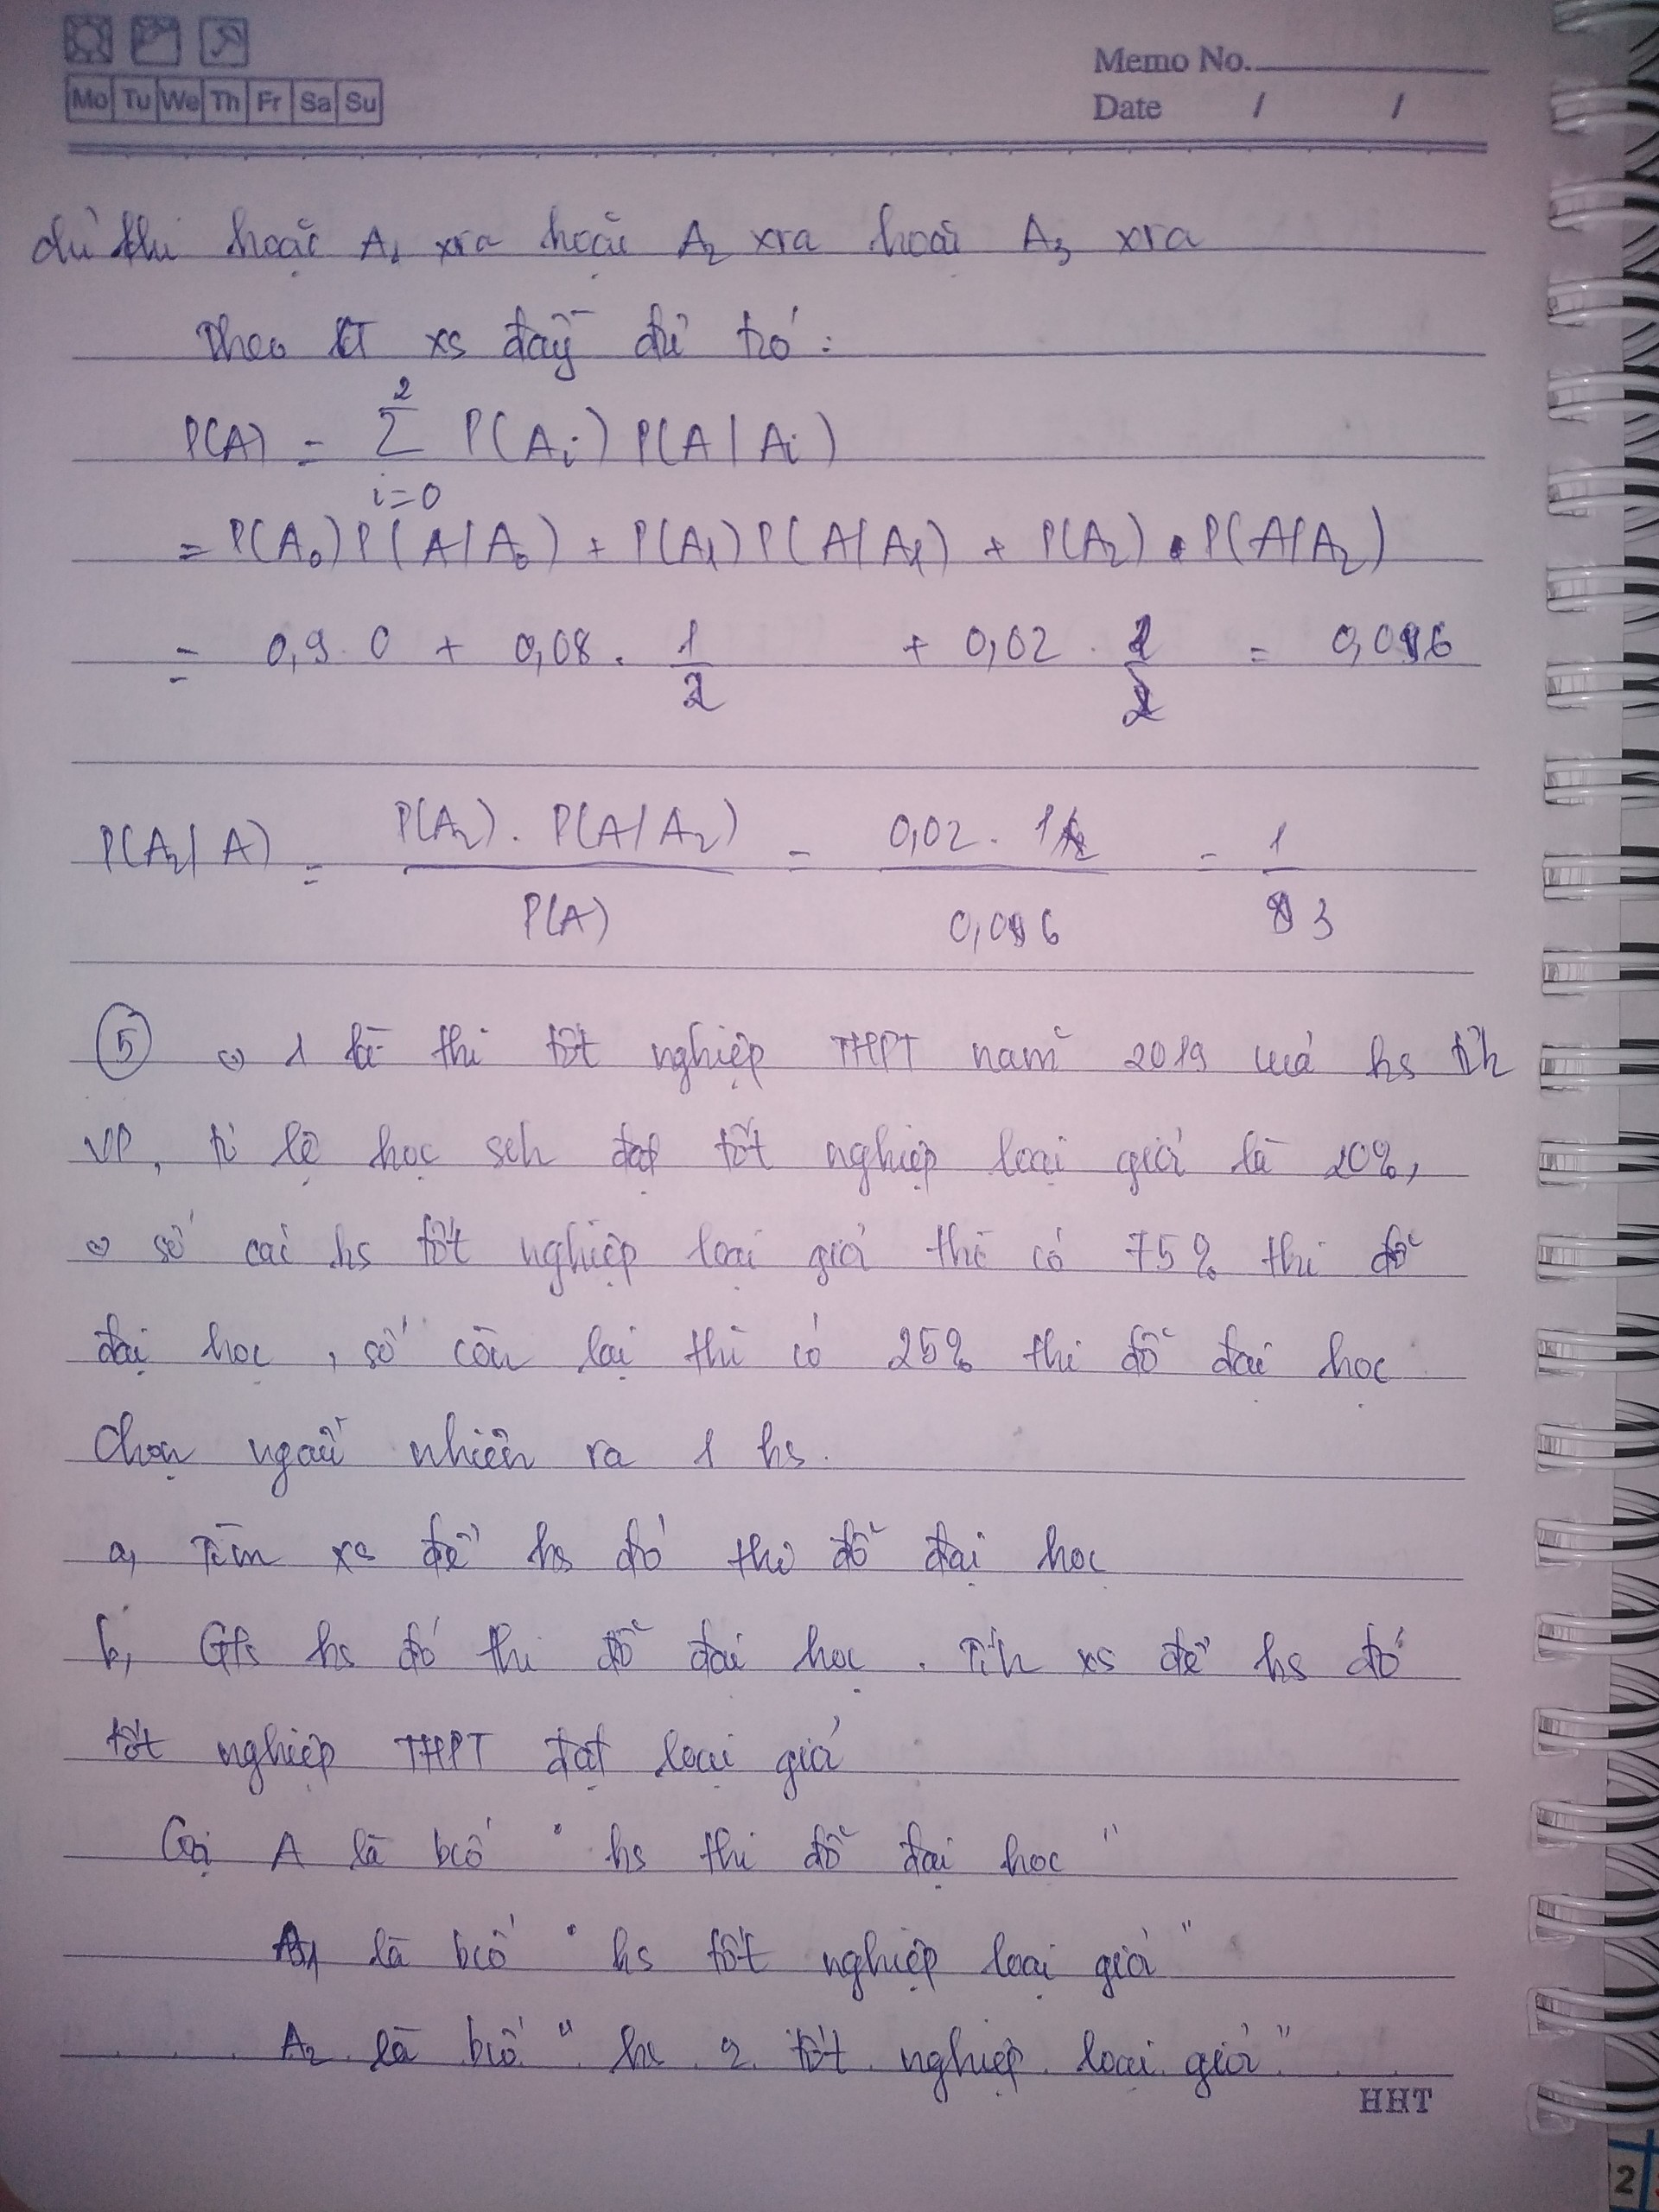 Mo Tu We Th Fr Sa Su
Memo No.
Date / /
thì hoặc A1 xra hoặc A2 xra hoặc A3 xra
Theo CT xs đầy đủ có:
P(A) = Σ P(Ai) P(A/Ai)
2
i=0
= P(A0) P(A/A0) + P(A1) P(A/A1) + P(A2) . P(A/A2)
= 0,9 . 0 + 0,08 . 1/2 + 0,02 . 2/2 = 0,06
P(A2/A) = P(A2) . P(A/A2) / P(A) = 0,02 . 1 / 0,06 = 1/3
5 1 thi tốt nghiệp THPT năm 2019 hs
VP, tỉ lệ học đạt tốt nghiệp loại giỏi là 20%,
số hs tốt nghiệp loại giỏi thì có 75% thi đỗ
đại học, số còn lại thì có 25% thi đỗ đại học
Chọn ngẫu nhiên ra 1 hs.
a, xs để hs đó thi đỗ đại học
b, Gfs hs đó thi đỗ đại học . Tính xs để hs đó
tốt nghiệp THPT đạt loại giỏi
Gọi A là bcố " hs thi đỗ đại học "
A1 là bcố " hs tốt nghiệp loại giỏi "
A2 là bcố " hs tốt nghiệp loại giỏi "
HHT
2